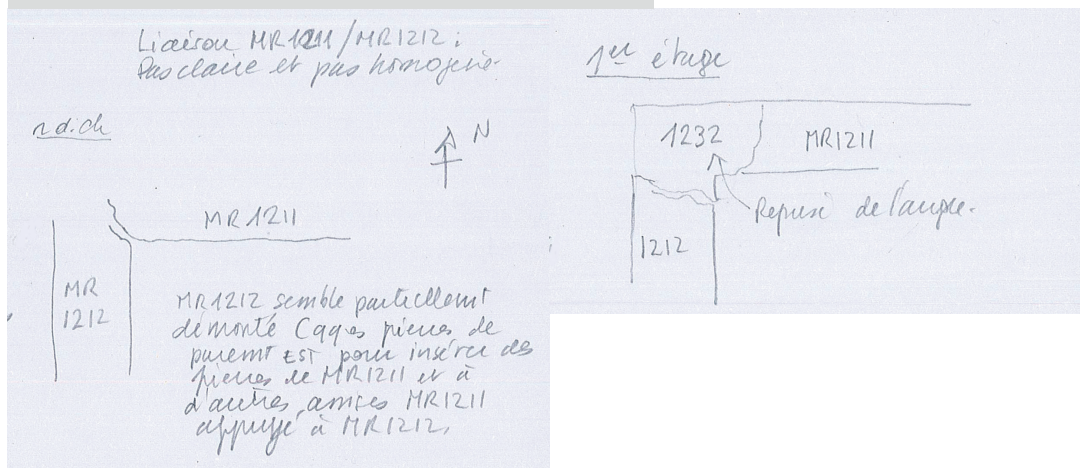 Liaison MR1211/MR1212 :
Pas claire et pas homogène.
r.d.ch
N
MR1211
MR
1212
MR1212 semble partiellemt
démonté (qqes pierres de
paremt EST pour insérer des
pierres de MR1211 et à
d'autres assises MR1211
appuyé à MR1212.
1er étage
1232
MR1211
Reprise de l'angle.
1212